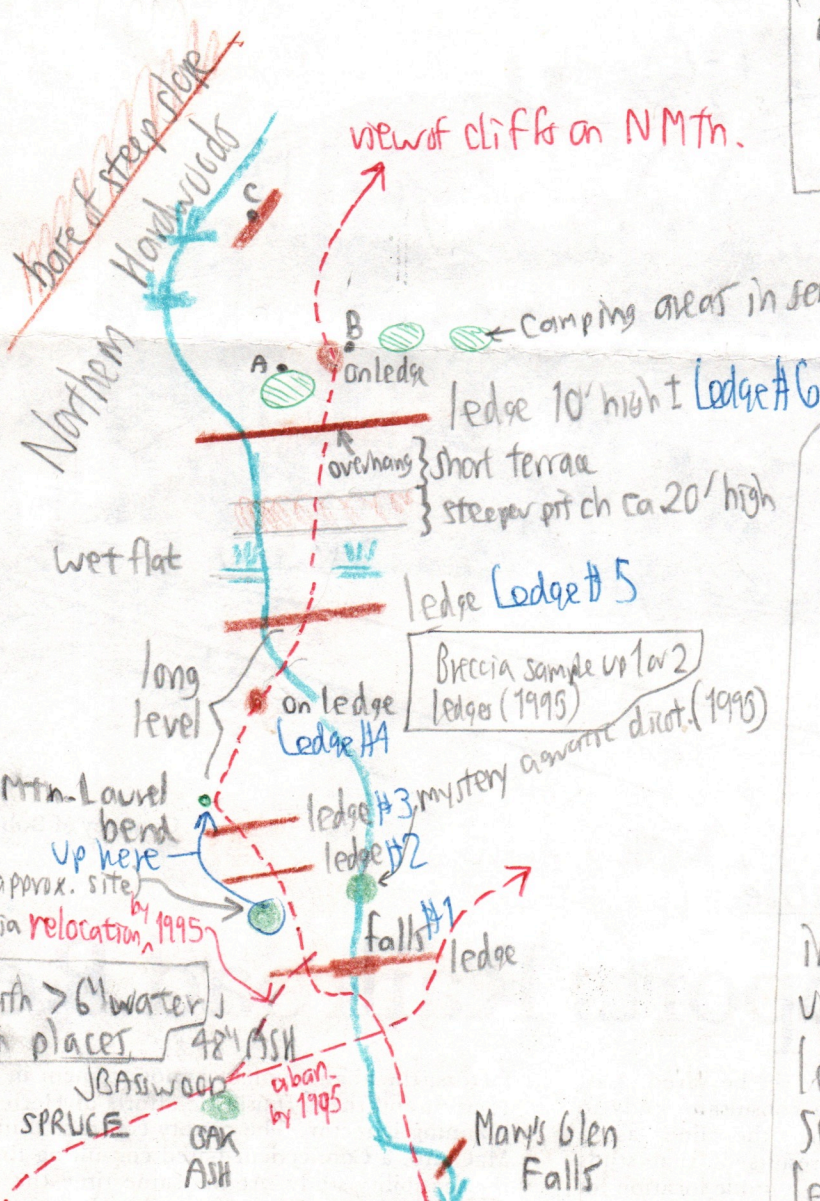 base of steep slope
Northern Hardwoods
view of cliffs on N Mtn.
C
B
A
on ledge
camping areas in
ledge 10' high ± Ledge #6
overhang } short terrace
} steeper pitch ca 20' high
wet flat
ledge Ledge #5
long
level
Breccia sample up 1 or 2
ledges (1995)
on ledge
Ledge #4
mystery aquatic dicot. (1995)
Mtn. Laurel
bend
ledge #3
up here
ledge #2
approx. site)
relocation by 1995
falls #1
ledge
> 6" water
places
48" ASH
BASSWOOD
aban.
by 1995
SPRUCE
OAK
ASH
Mary's Glen
Falls